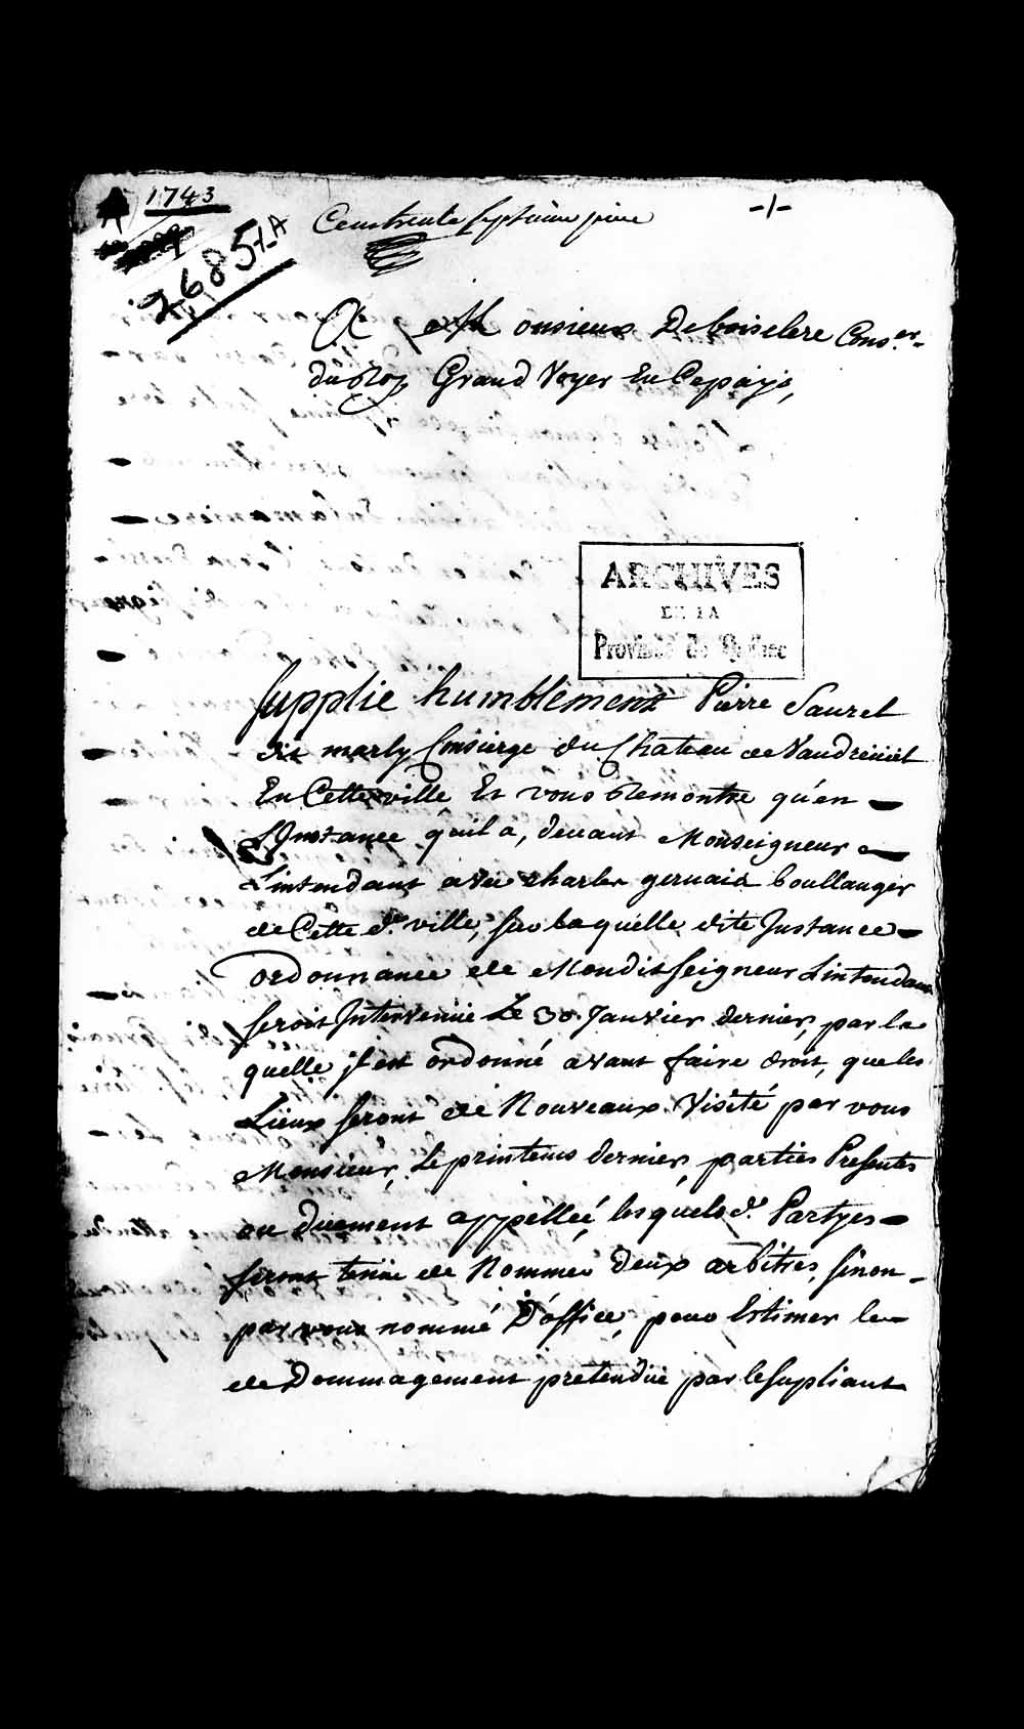 1743
-1-
Cent trente septieme piece
26851/A
A Monsieur Deboisclere Cons.er
du Roy Grand Voyer En Cepaÿs,
ARCHIVES
DE LA
Province de Québec
Supplie humblement Pierre Sauzel
dit marly Consierge du Chateau de Vaudreüil
En Cette ville Et vous Remontre qu'en
L'Instance quil a, devant Monseigneur
L'intendant avec charles gervais boullanger
de Cette d.e ville, sur laquelle dite Instance
ordonnance de Mondit Seigneur Lintendant
seroit Intervenüe Le 30 Janvier dernier, par la
quelle jl est ordonné avant faire droit, que les
Liëux seront de Nouveaux Visité par vous
Monsieur, Le printems dernier, parties Presentes
ou duement appelleé, lesquels d. Partyes
seront tenüe de Nommer deux arbitres, sinon
par vous nommé D'office, pour Estimer le
de Dommagement pretendüe par le Supliant